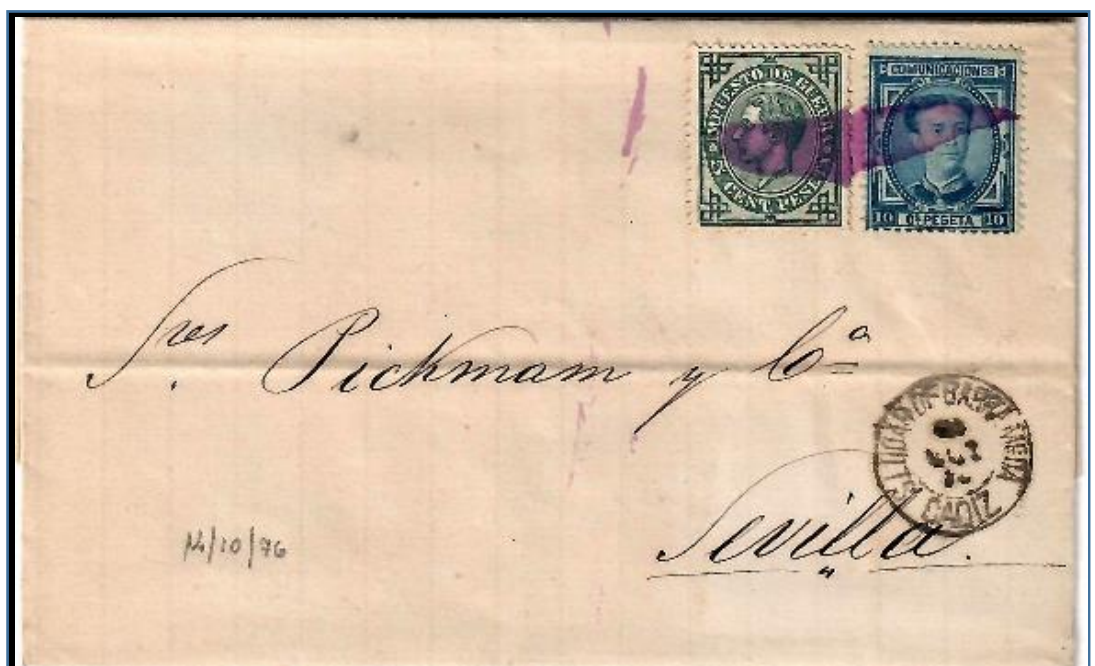 IMPUESTO DE GUERRA
5 CENT PESETA
COMUNICACIONES
10 Cs PESETA 10
Sres Pickmam y Cª
S. LUCAR DE BARRAMEDA
OCT
CADIZ
Sevilla.
/10/76